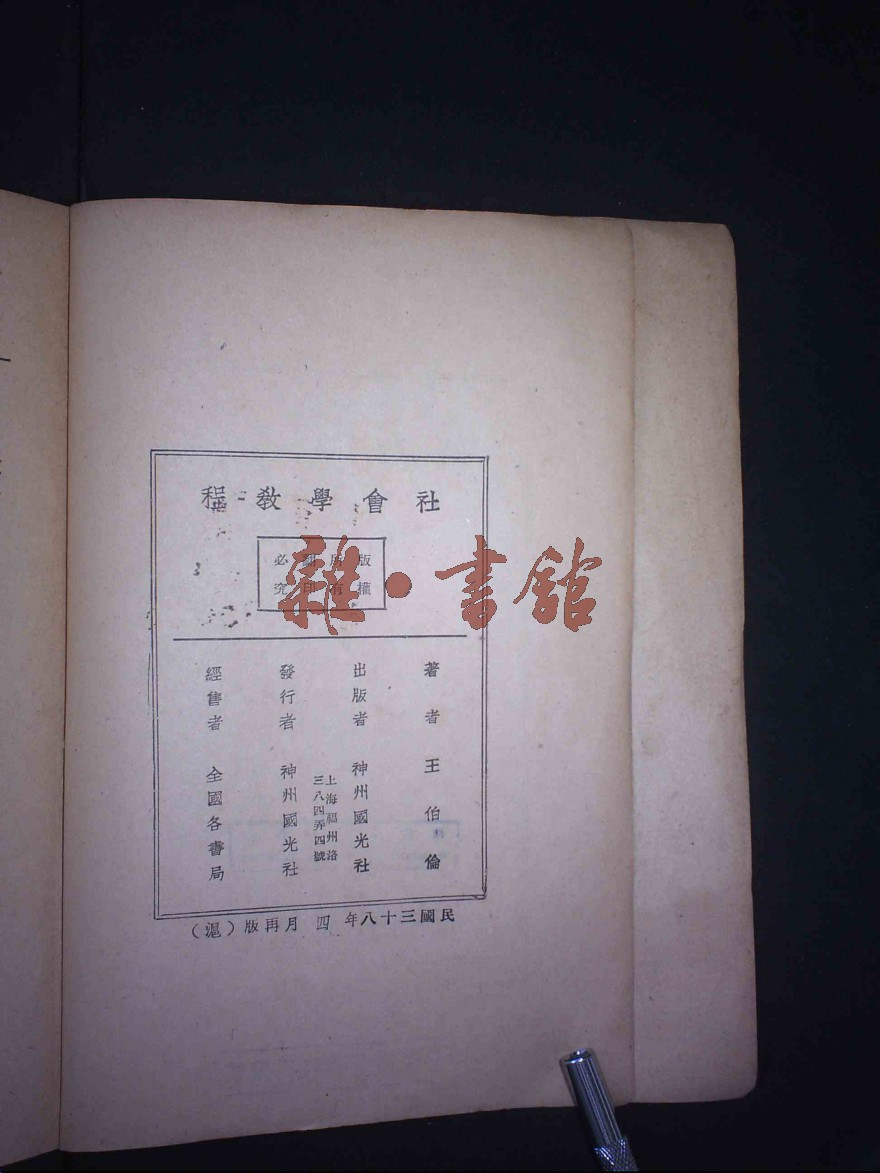 社會學教程
版權
所有
翻印
必究
雜·書館
著者 王伯倫
出版者 神州國光社
上海福州洛
三八四弄四號
發行者 神州國光社
經售者 全國各書局
民國三十八年 四 月再版（滬）